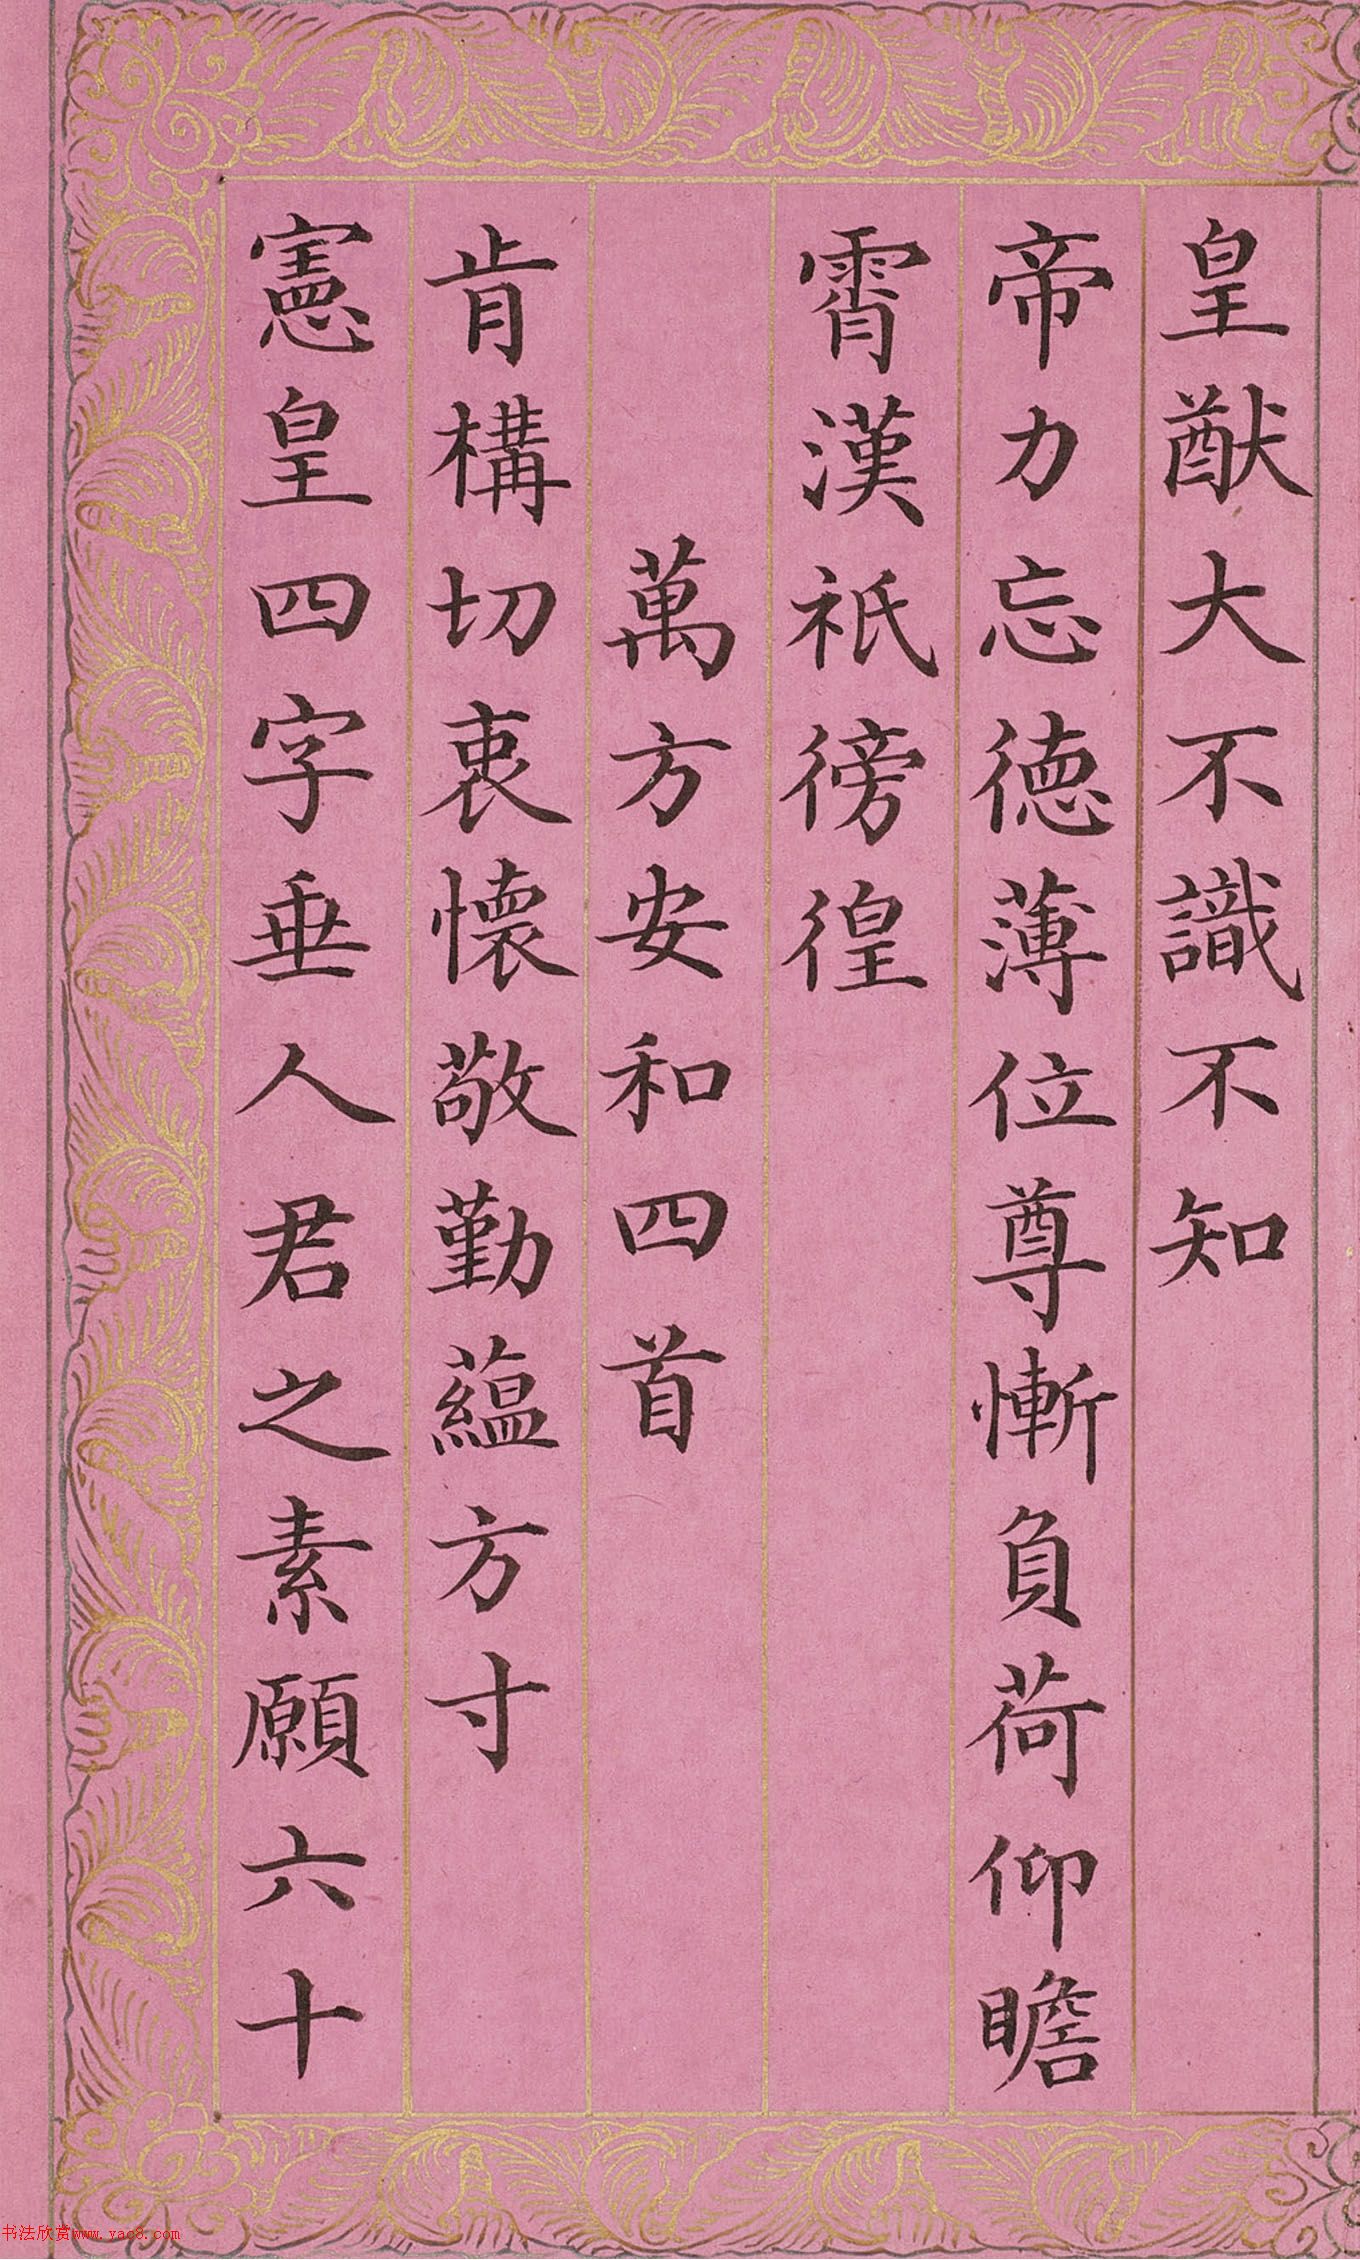 皇猷大不識不知
帝力忘德薄位尊慚負荷仰瞻
霄漢祇徬徨
萬方安和四首
肯構切衷懷敬勤蘊方寸
憲皇四字垂人君之素願六十
书法欣赏www.yac8.com